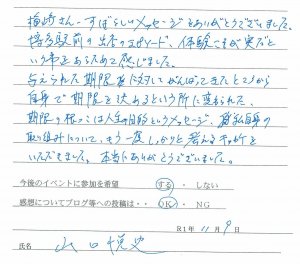 梅崎さん、すばらしいメッセージをありがとうございました。
博多駅前の出来のエピソード、体験こそが実だと
いう事をあらためて感じました。
与えられた期限に対してがんばってきたところから
自身で期限を決めるという所に変われた。
期限の根っこは人生の目的というメッセージ、私自身の
取り組みについて、もう一度しっかりと考えるキッカケを
いただきました。本当にありがとうございました。
今後のイベントに参加を希望 する・しない
感想についてブログ等への投稿は・・ OK・NG
R1年11月9日
氏名 山口悦史